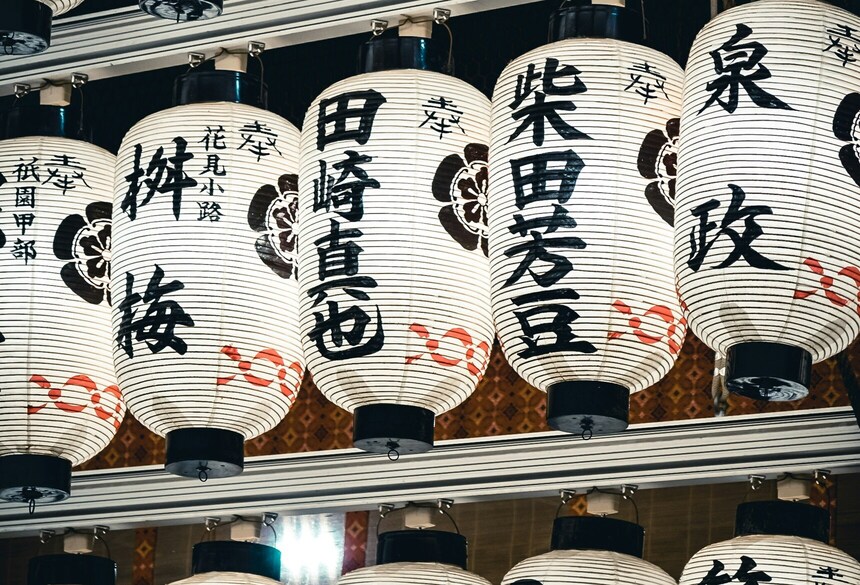 奉
祇園甲部
奉
花見小路
桝梅
奉
田崎真也
奉
柴田芳豆
奉
泉政